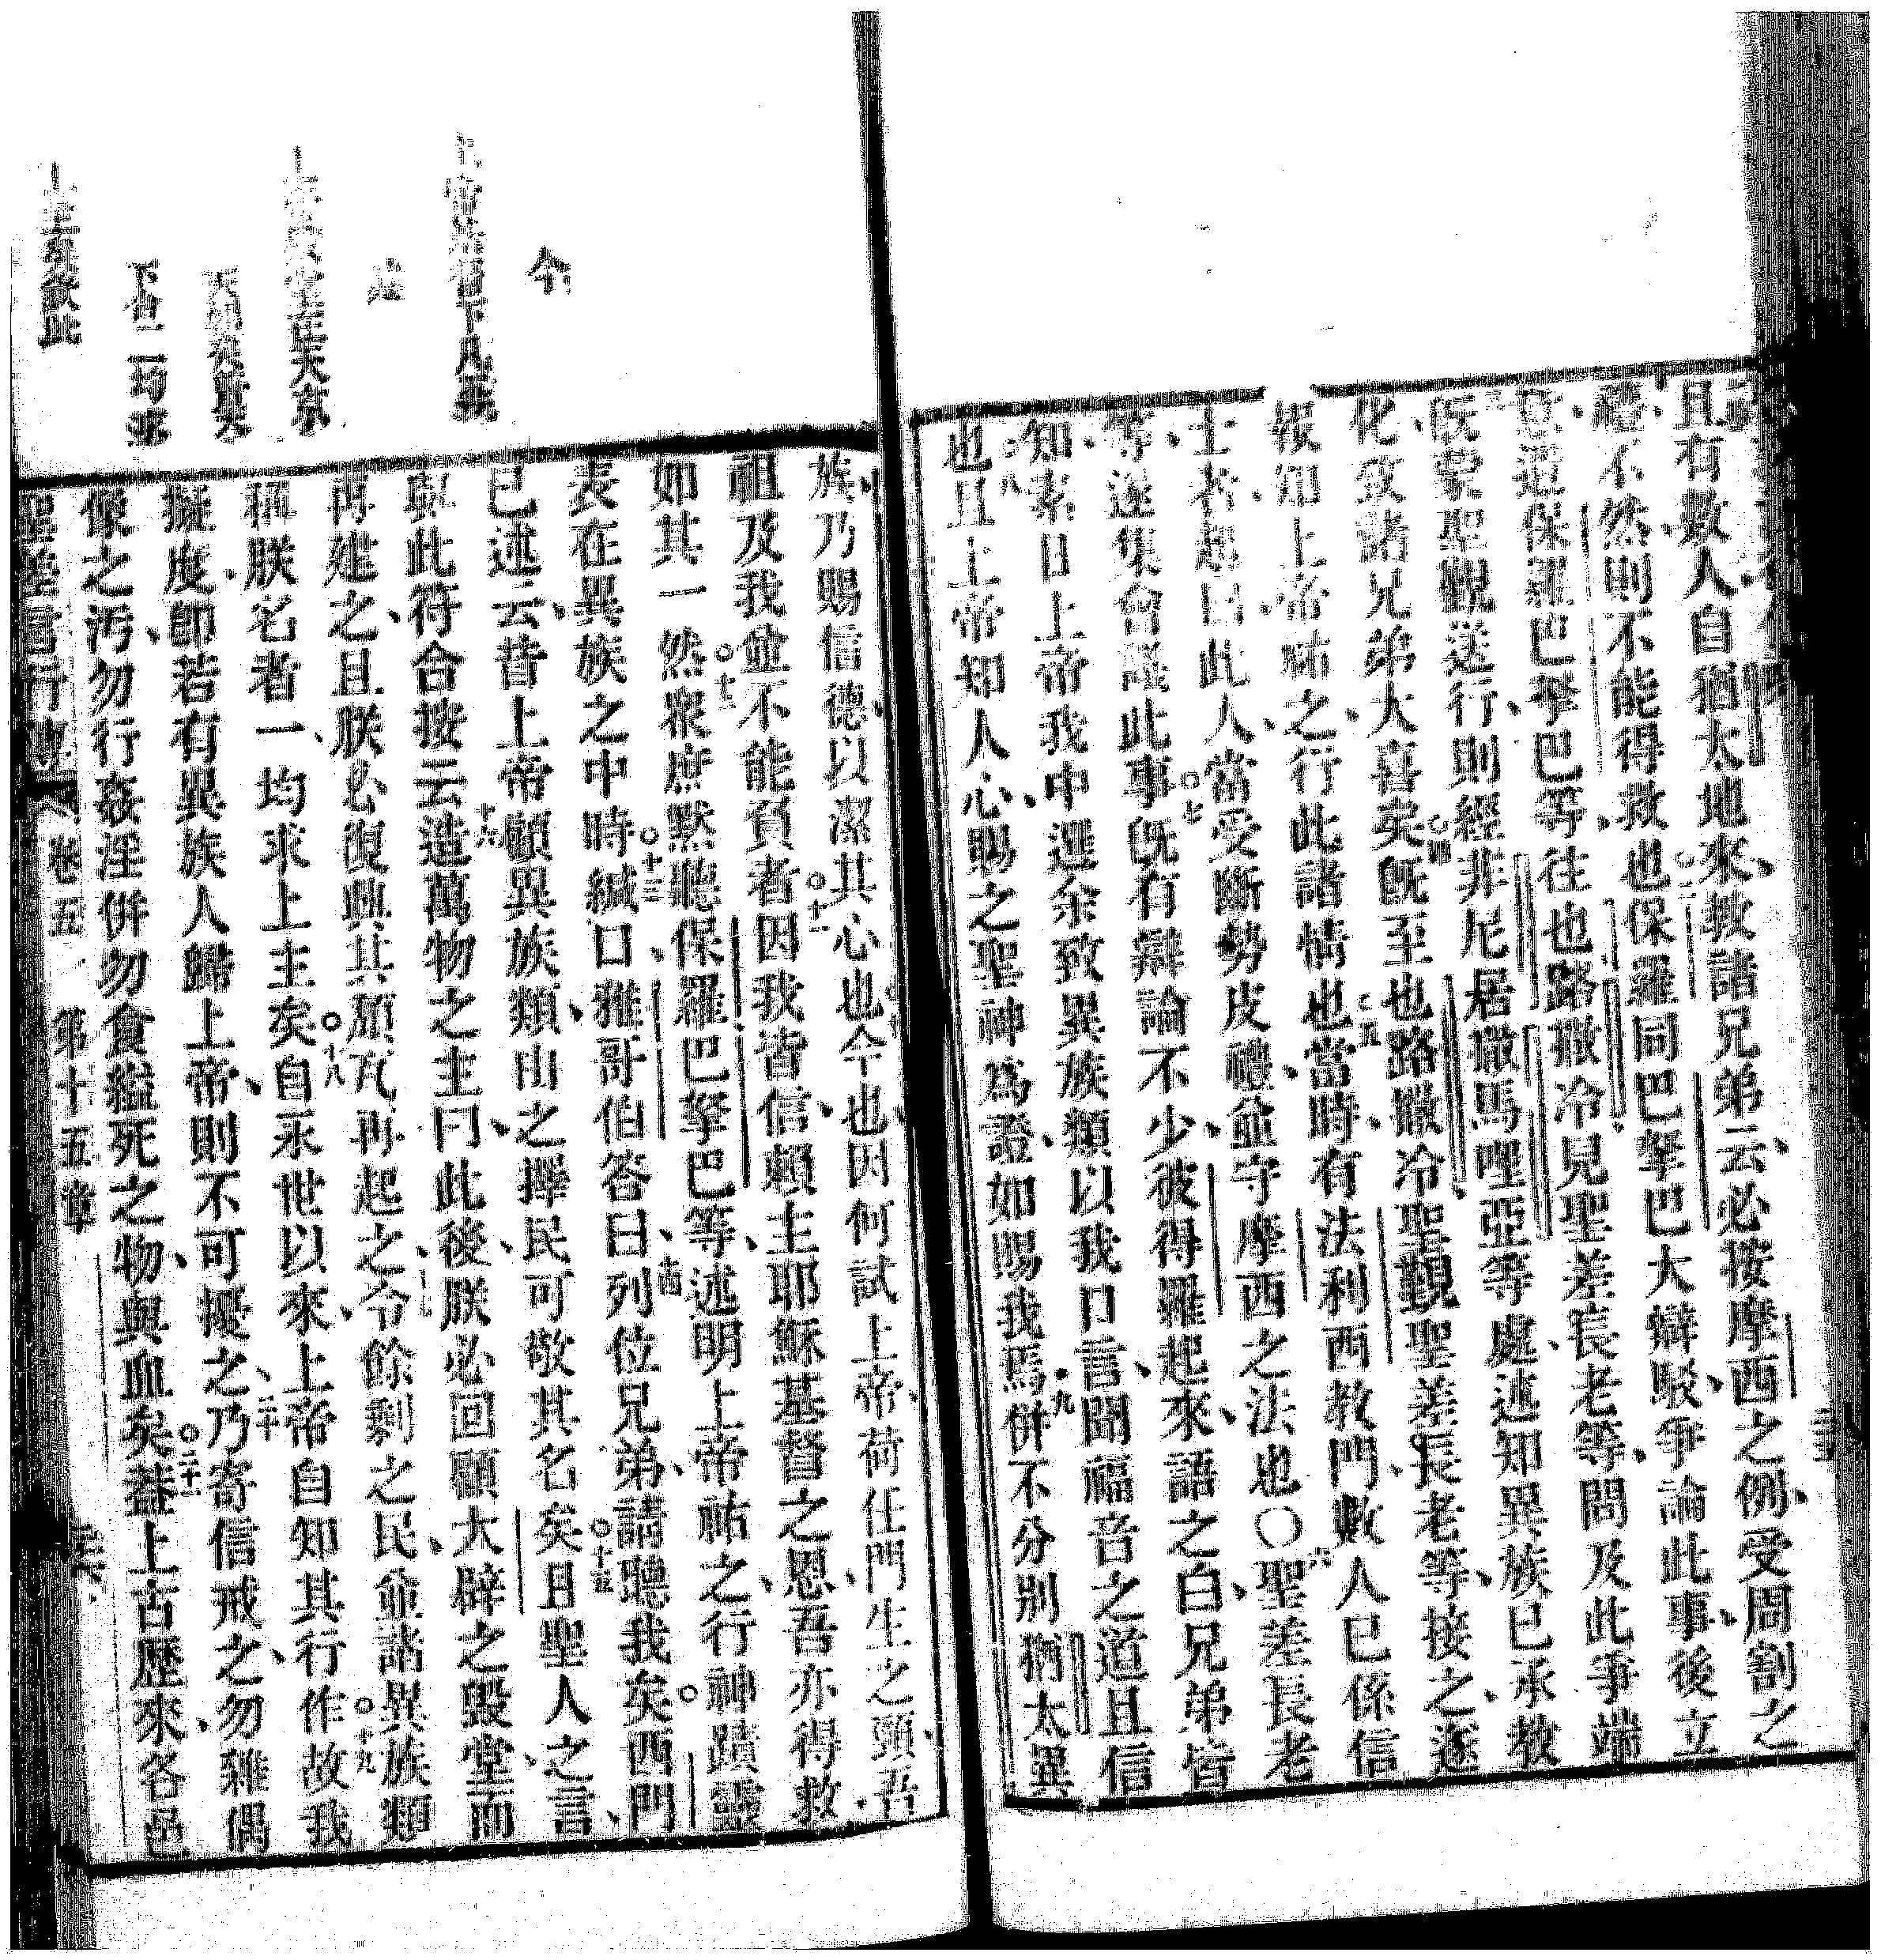 且有數人自猶太地來教諸兄弟云必按摩西之例受周割之
禮不然則不能得救也保羅同巴拏巴大辯駁爭論此事後立
意遣保羅巴拏巴等往也路撒冷見聖差長老等問及此爭端
既蒙聖觀送行則經非尼居撒馬哩亞等處述知異族已承教
化致諸兄弟大喜矣既至也路撒冷聖觀聖差長老等接之遂
報知上帝祐之行此諸情也當時有法利西教門數人已係信
士者起曰此人當受斷勢皮禮並守摩西之法也〇聖差長老
等遂集會議此事既有辯論不少彼得羅起來語之白兄弟皆
知素日上帝我中選余致異族類以我口言聞福音之道且信
也且上帝知人心賜之聖神為證如賜我焉併不分別猶太異
族乃賜信德以潔其心也今也因何試上帝荷任門生之頭吾
祖及我並不能負者因我皆信賴主耶穌基督之恩吾亦得救
如其一然眾庶默聽保羅巴拏巴等述明上帝祐之行神蹟靈
表在異族之中時緘口雅哥伯答曰列位兄弟請聽我矣西門
已述云昔上帝顧異族類由之擇民可敬其名矣且聖人之言
與此符合按云造萬物之主曰此後朕必回顧大辟之毀堂而
再建之且朕必復興其頹瓦再起之令餘剩之民並諸異族類
稱朕名者一均求上主矣自永世以來上帝自知其行作故我
擬度即若有異族人歸上帝則不可擾之乃寄信戒之勿雜偶
像之污勿行姦淫併勿食縊死之物與血矣蓋上古歷來各邑
卷五 第十五章
今
下皆一均求